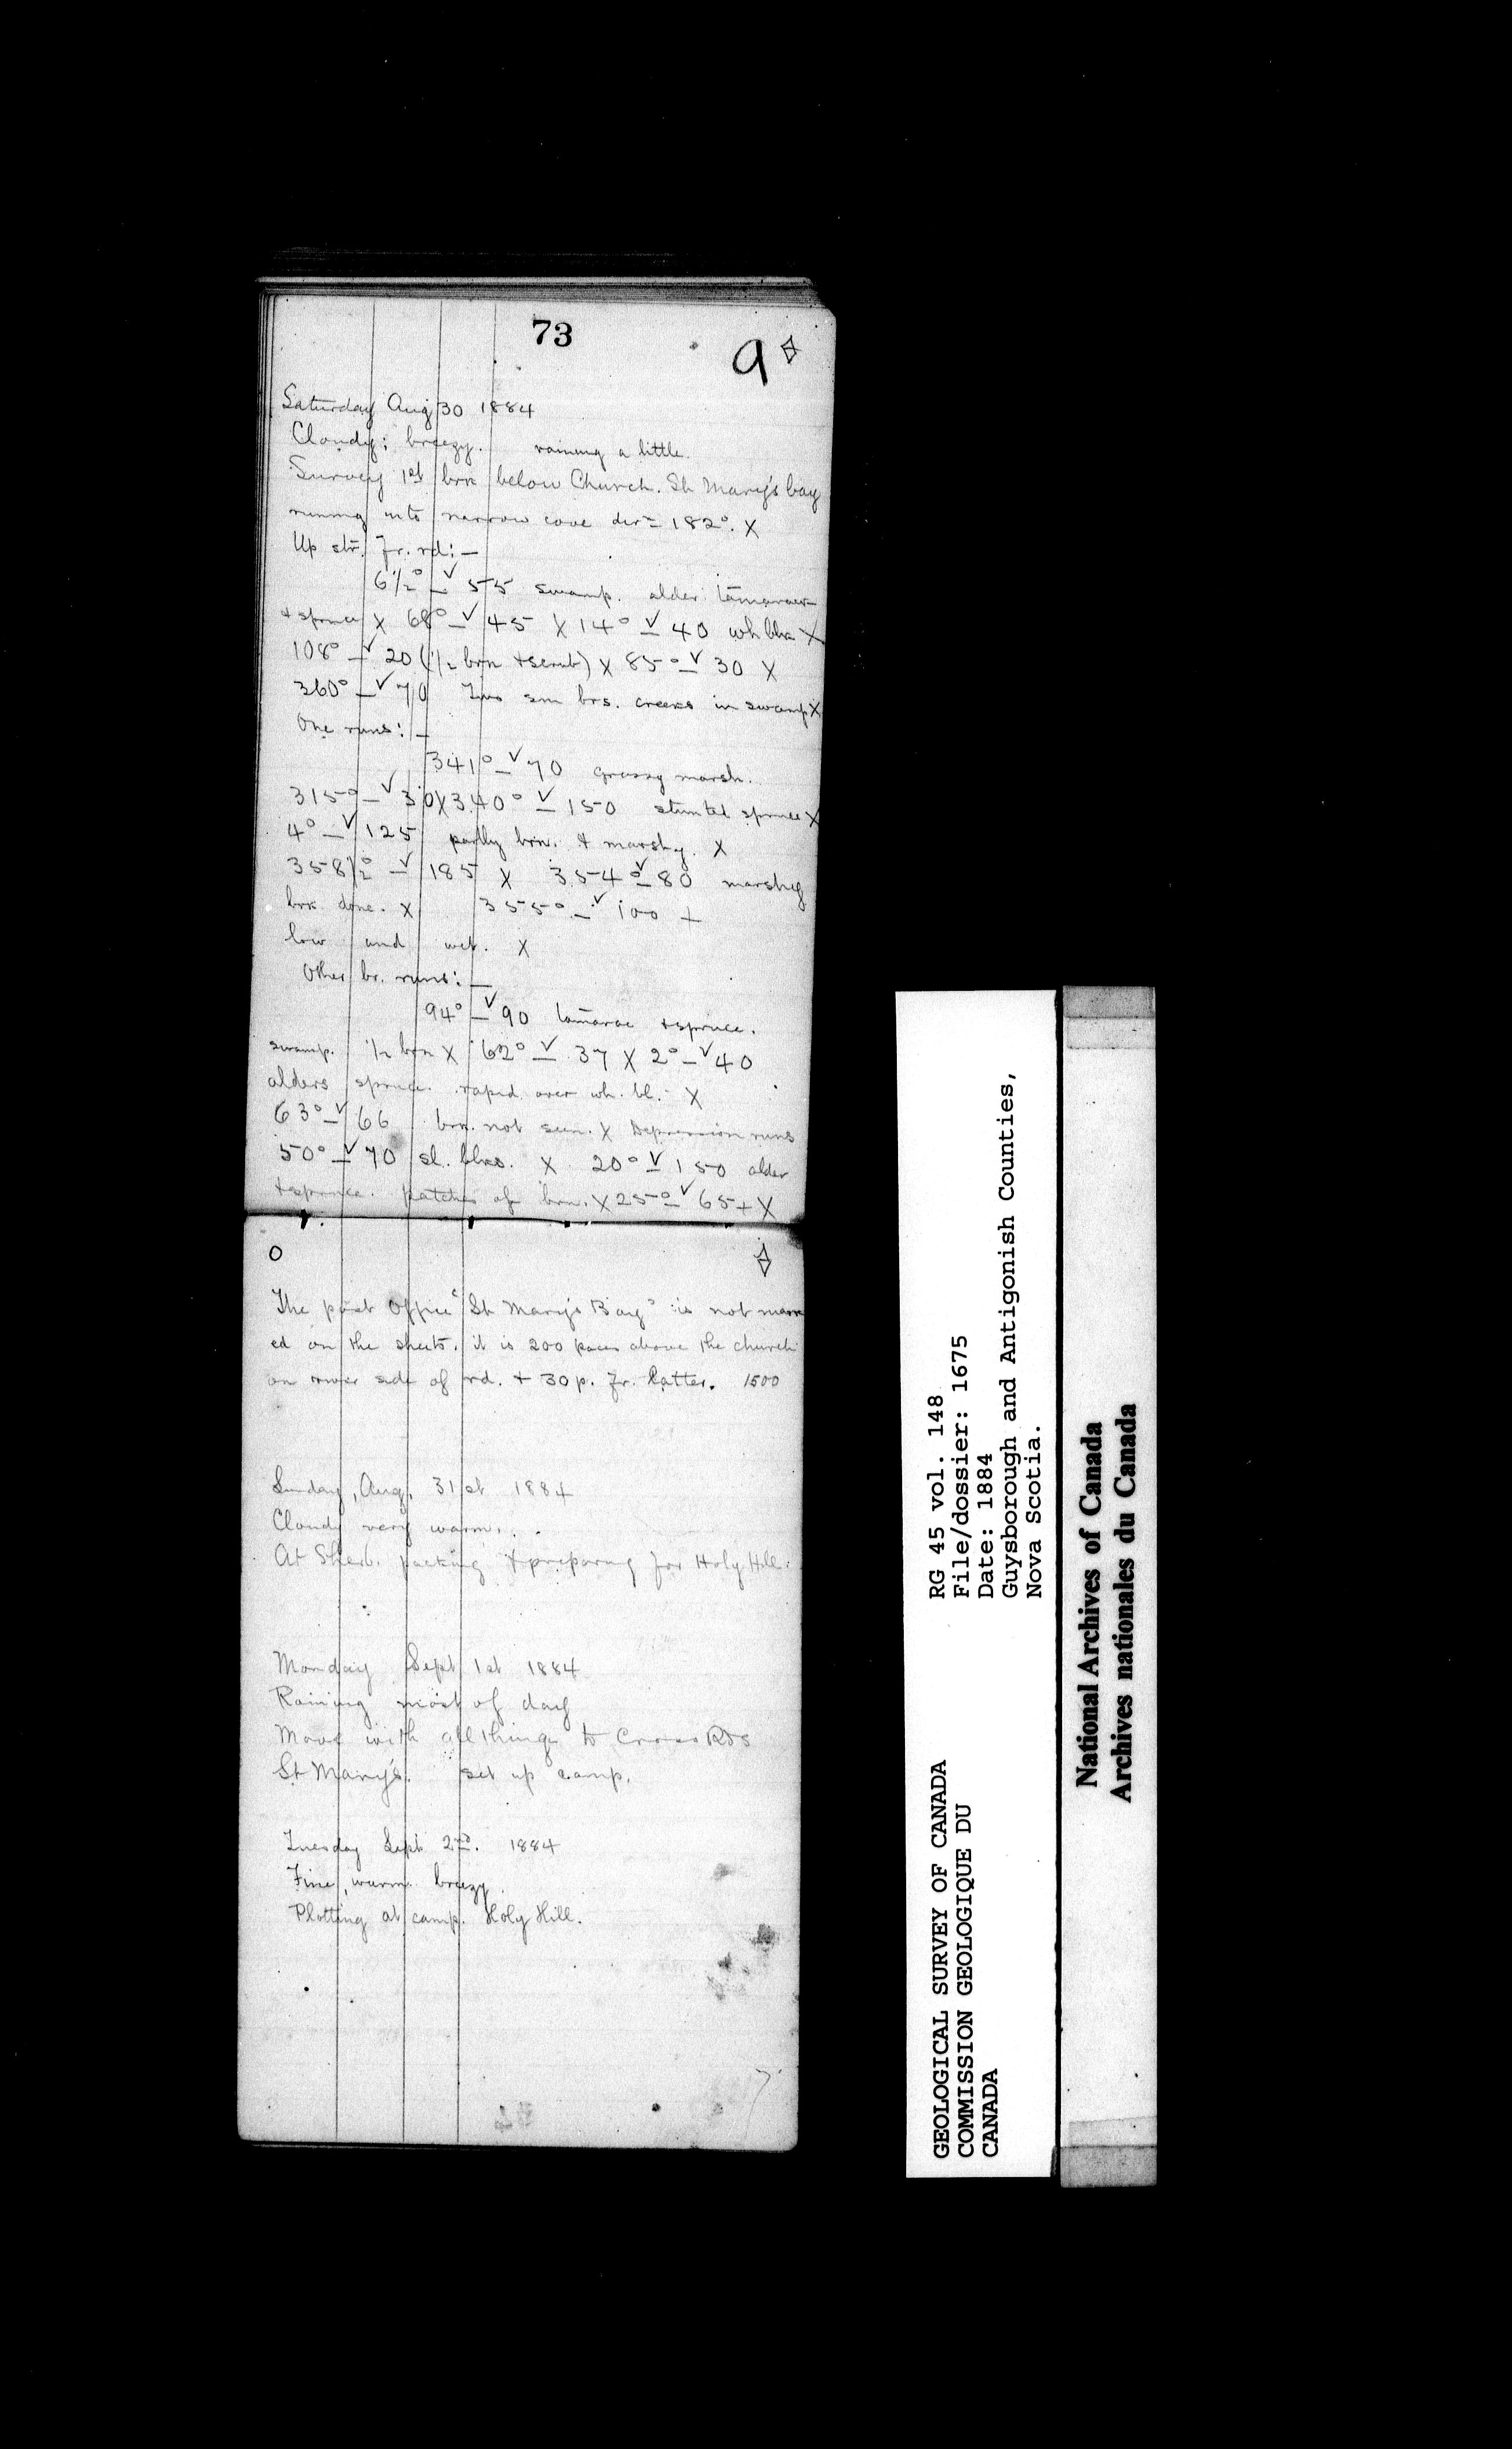 73
9
Saturday Aug 30 1884
Cloudy; breezy. raining a little.
Survey 1st brk below Church. St Mary's bay
running into narrow cove dirn 182°. X
Up str. fr. rd: —
6½° — ✓ 55 swamp. alder tamarac
+ spruce X 68° — ✓ 45 X 14° — ✓ 40 wh blks X
108° — ✓ 20 (½ brn + scrub) X 85° — ✓ 30 X
360° — ✓ 70 Two sm brs. creeks in swamp X
One runs: —
341° — ✓ 70 grassy marsh.
315° — ✓ 30 X 340° — ✓ 150 stunted spruce X
4° — ✓ 125 partly brn. + marshy. X
358½° — ✓ 185 X 354° — ✓ 80 marshy
brk. done. X 355° — ✓ 100 +
low and wet. X
Other br. runs: —
94° — ✓ 90 tamarac + spruce.
swamp. ½ brn X 62° — ✓ 37 X 2° — ✓ 40
alders spruce. rapid over wh. bl. X
63° — ✓ 66 brk. not seen. X Depression runs
50° — ✓ 70 sl. blks. X 20° — ✓ 150 alder
+ spruce. patches of brn. X 25° — ✓ 65 + X
0
The post office "St Mary's Bay" is not mark
ed on the sheets. it is 200 paces above the church
on river side of rd. + 30 p. fr. latter. 1500
Sunday, Aug. 31st 1884
Cloudy very warm.
At Sherb. packing + preparing for Holy Hill.
Monday Sept 1st 1884
Raining most of day
Move with all things to Cross Rds
St Mary's. set up camp.
Tuesday Sept 2nd. 1884
Fine, warm. breezy.
Plotting at camp. Holy Hill.
GEOLOGICAL SURVEY OF CANADA
COMMISSION GEOLOGIQUE DU
CANADA
RG 45 vol. 148
File/dossier: 1675
Date: 1884
Guysborough and Antigonish Counties,
Nova Scotia.
National Archives of Canada
Archives nationales du Canada